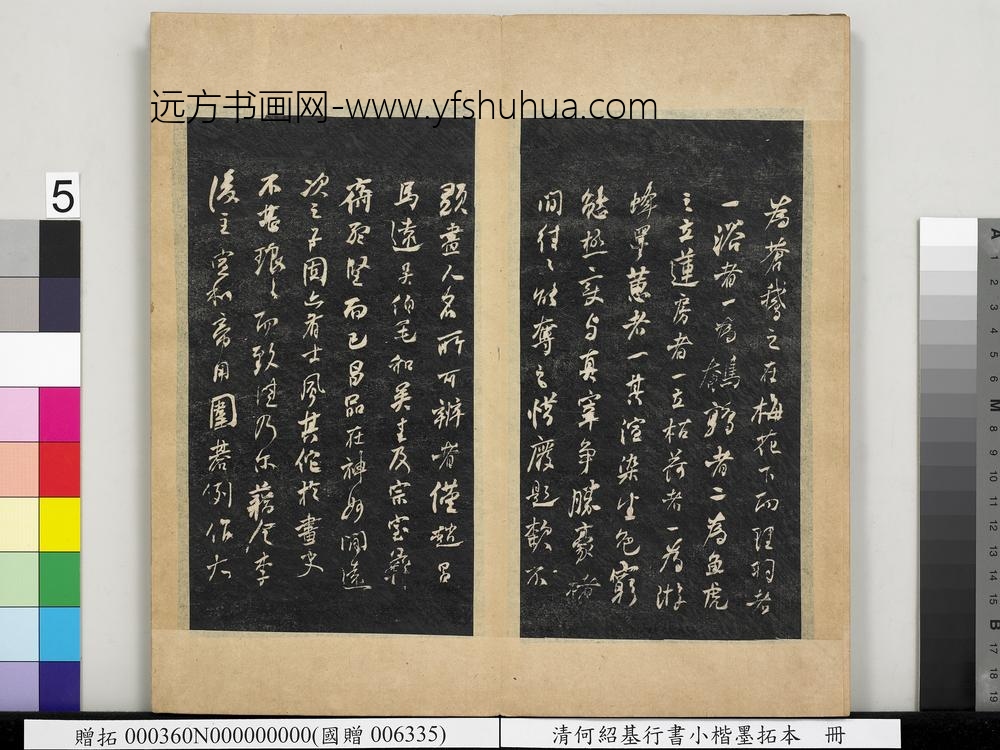 远方书画网-www.yfshuhua.com
5
為蒼鵞之在梅花下而理羽者
一浴者一為鶺鴒者二為魚虎
之立蓮房者一立枯荷者一為游
蜂畢蕙者一其渲染生色窮
態極變與真宰爭勝豪楮
間往々欲奪之惜廢題款不
題畫人名所可辨者僅趙昌
馬遠吳伯毛和吳圭及宗室彝
齋孟堅而已昌品在神妙間遠
次之子固亦有士風其他於畫史
不甚琅々而致法乃爾藉令李
後主宣和帝用圍碁例作大
贈拓 000360N000000000(國贈 006335)
清何紹基行書小楷墨拓本 冊
A 1 2 3 4 5 M 8 9 10 11 12 13 14 15 B 17 18 19